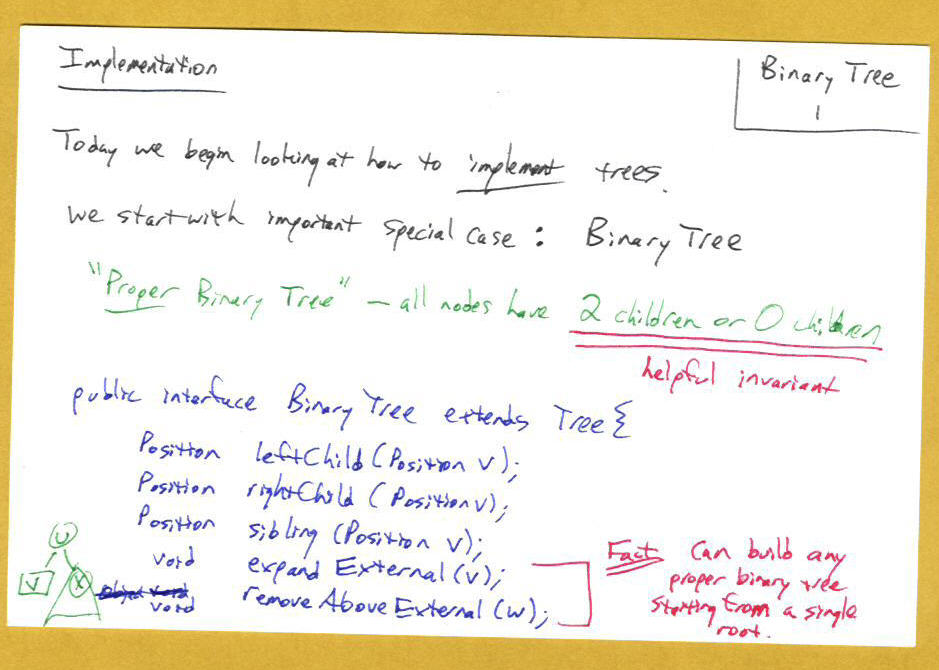 Implementation
Binary Tree
1
Today we begin looking at how to implement trees.
We start with important special case: Binary Tree
"Proper Binary Tree" — all nodes have 2 children or 0 children
helpful invariant
public interface Binary Tree extends Tree {
Position leftChild (Position v);
Position rightChild (Position v);
Position sibling (Position v);
void expand External (v);
void remove Above External (w);
object void
U
V
X
Fact Can build any
proper binary tree
starting from a single
root.